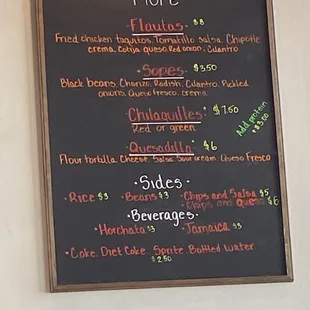 More
Flautas $8
Fried chicken taquitos. Tomatillo salsa. Chipotle
crema. Cotija queso. Red onion. Cilantro
·Sopes· $3.50
Black beans. Chorizo. Radish. Cilantro. Pickled
onions. Queso Fresco. crema
·Chilaquilles· $7.50
Red or green
Add protein
+$3.00
·Quesadilla· $6
Flour tortilla. Cheese. Salsa. Sour cream. Queso Fresco
·Sides·
·Rice $3 ·Beans $3 ·Chips and Salsa $5
·Chips and queso $6
·Beverages·
·Horchata $3 ·Jamaica $3
·Coke. Diet Coke. Sprite. Bottled Water
$2.50